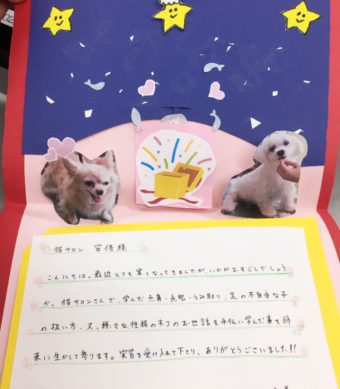 猫サロン 安倍様
こんにちは。最近とても寒くなってきましたが、いかがおすごしでしょう
か。猫サロンさんで、学んだ点鼻・点眼・うみ取り、足の不自由な子
の扱い方、又、様々な性格のネコのお世話を手伝い学んだ事を将
来に生かして参ります。実習を受け入れて下さり、ありがとうございました!!